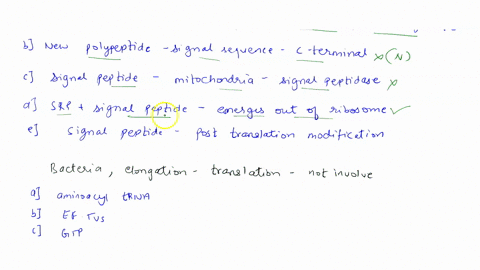 b] New polypeptide - signal sequence - C-terminal x (N)
c] Signal peptide - mitochondria - signal peptidase x
d] SRP + signal peptide - emerges out of ribosome ✓
e] Signal peptide - Post translation modification
Bacteria, elongation - translation - not involve
a] aminoacyl tRNA
b] EF Tus
c] GTP